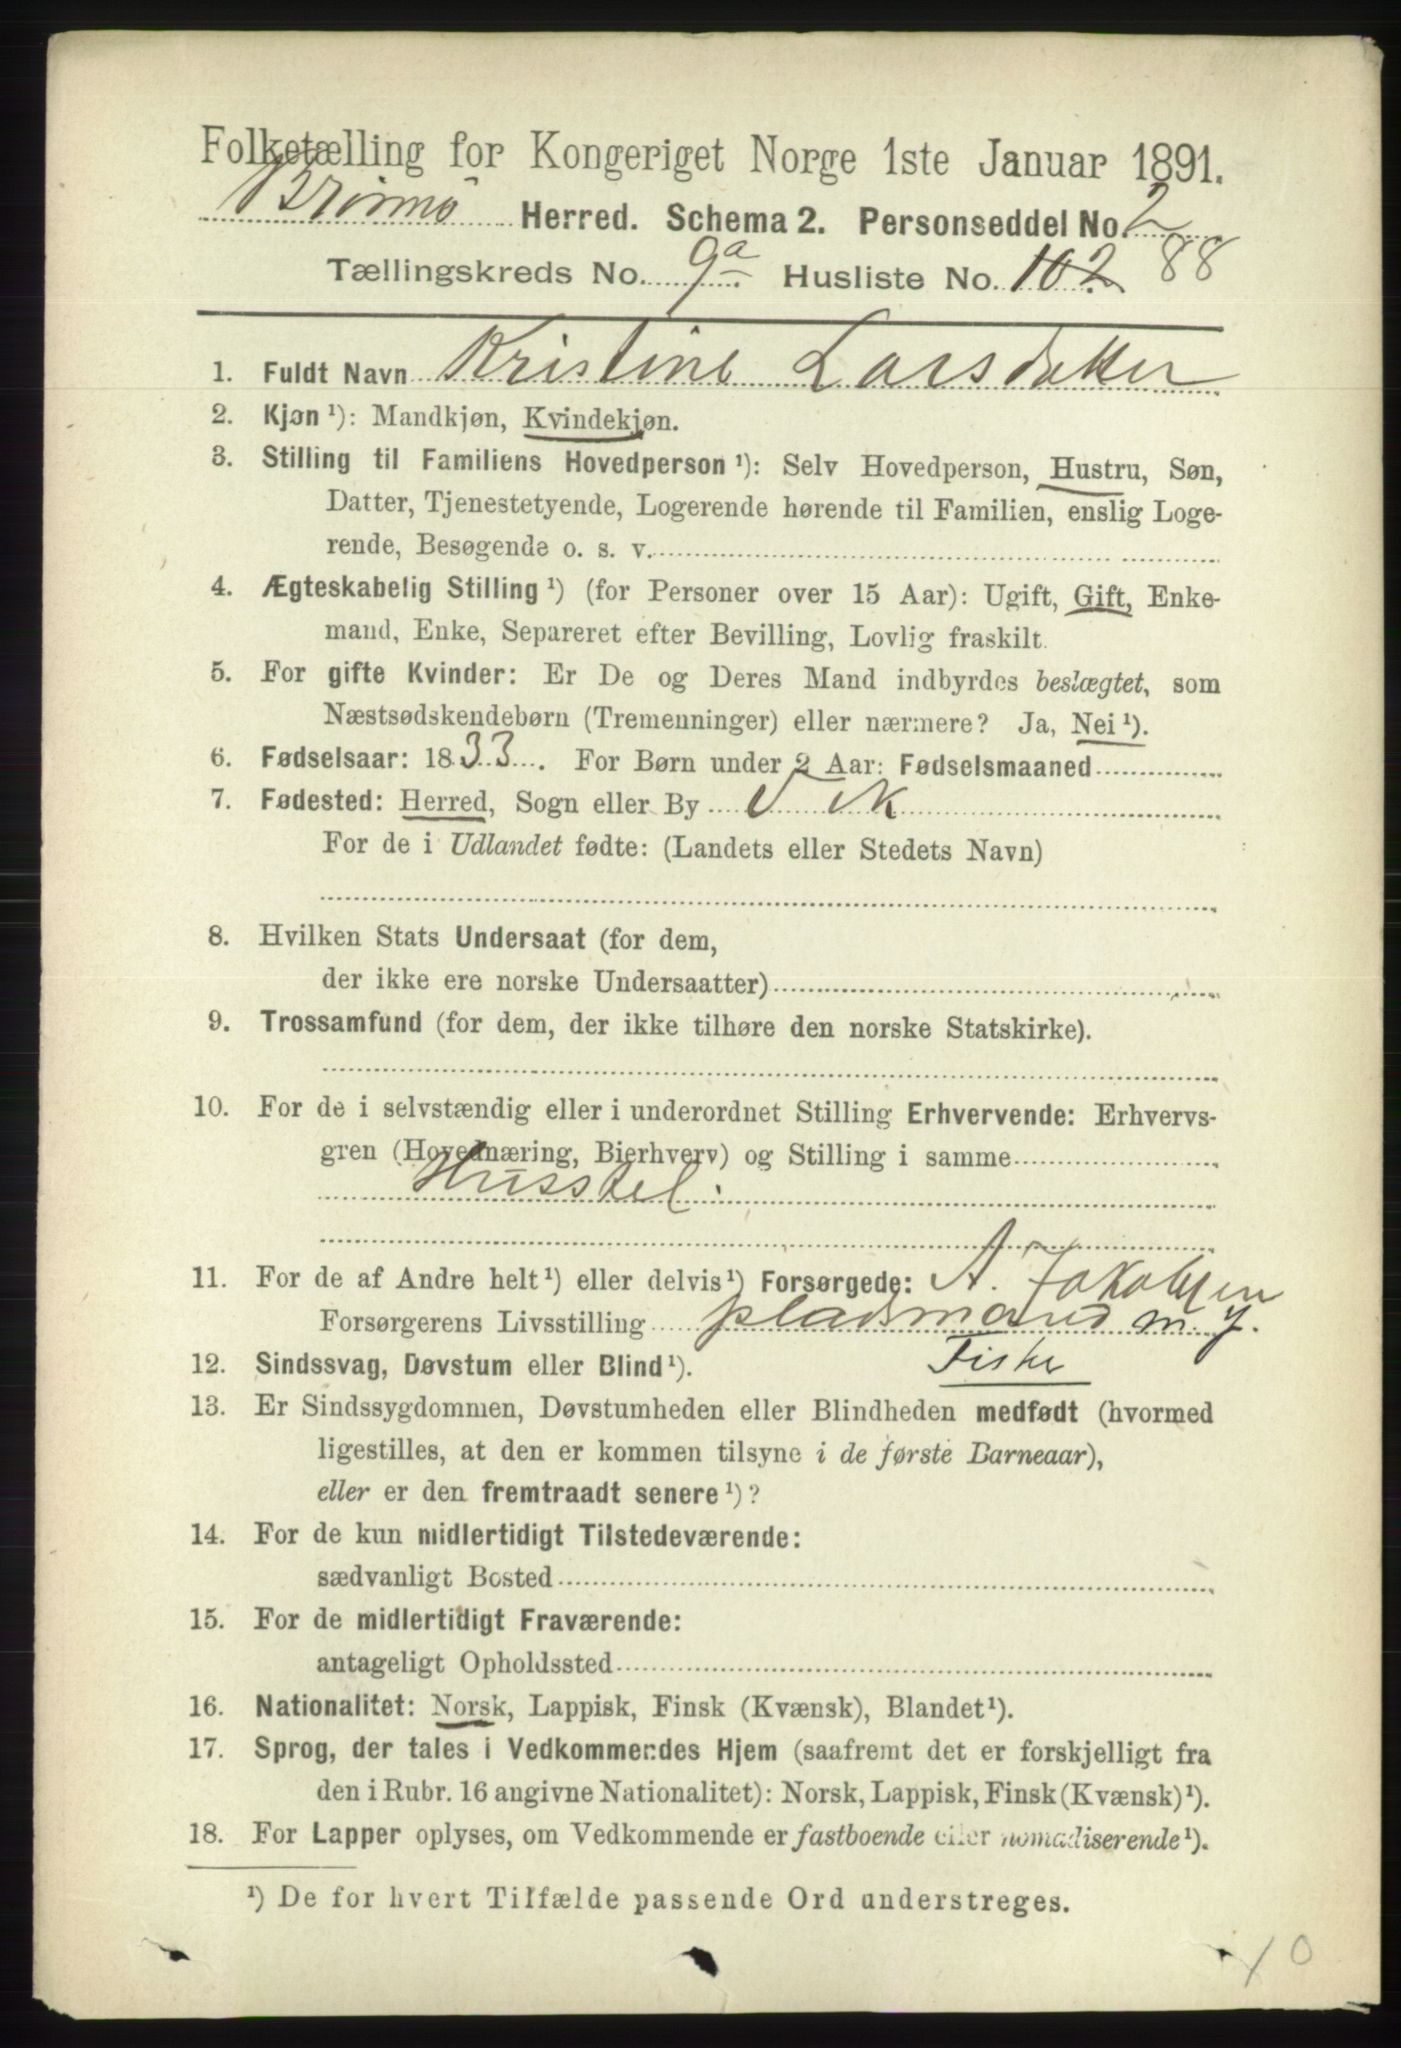 Folketælling for Kongeriget Norge 1ste Januar 1891.
Brønnø Herred. Schema 2. Personseddel No. 2
Tællingskreds No. 9a Husliste No. 102 88
1. Fuldt Navn Kristine Larsdatter
2. Kjøn ¹): Mandkjøn, Kvindekjøn.
3. Stilling til Familiens Hovedperson ¹): Selv Hovedperson, Hustru, Søn,
Datter, Tjenestetyende, Logerende hørende til Familien, enslig Loge-
rende, Besøgende o. s. v.
4. Ægteskabelig Stilling ¹) (for Personer over 15 Aar): Ugift, Gift, Enke-
mand, Enke, Separeret efter Bevilling, Lovlig fraskilt.
5. For gifte Kvinder: Er De og Deres Mand indbyrdes beslægtet, som
Næstsødskendebørn (Tremenninger) eller nærmere? Ja, Nei ¹).
6. Fødselsaar: 1833. For Børn under 2 Aar: Fødselsmaaned
7. Fødested: Herred, Sogn eller By Vik
For de i Udlandet fødte: (Landets eller Stedets Navn)
8. Hvilken Stats Undersaat (for dem,
der ikke ere norske Undersaatter)
9. Trossamfund (for dem, der ikke tilhøre den norske Statskirke).
10. For de i selvstændig eller i underordnet Stilling Erhvervende: Erhvervs-
gren (Hovednæring, Bierhverv) og Stilling i samme
Husstel.
11. For de af Andre helt ¹) eller delvis ¹) Forsørgede: A. Jakobsen
Forsørgerens Livsstilling pladsmand m. J.
12. Sindssvag, Døvstum eller Blind ¹). Fisker
13. Er Sindssygdommen, Døvstumheden eller Blindheden medfødt (hvormed
ligestilles, at den er kommen tilsyne i de første Barneaar),
eller er den fremtraadt senere ¹)?
14. For de kun midlertidigt Tilstedeværende:
sædvanligt Bosted
15. For de midlertidigt Fraværende:
antageligt Opholdssted
16. Nationalitet: Norsk, Lappisk, Finsk (Kvænsk), Blandet ¹).
17. Sprog, der tales i Vedkommendes Hjem (saafremt det er forskjelligt fra
den i Rubr. 16 angivne Nationalitet): Norsk, Lappisk, Finsk (Kvænsk) ¹).
18. For Lapper oplyses, om Vedkommende er fastboende eller nomadiserende ¹).
¹) De for hvert Tilfælde passende Ord understreges.
10